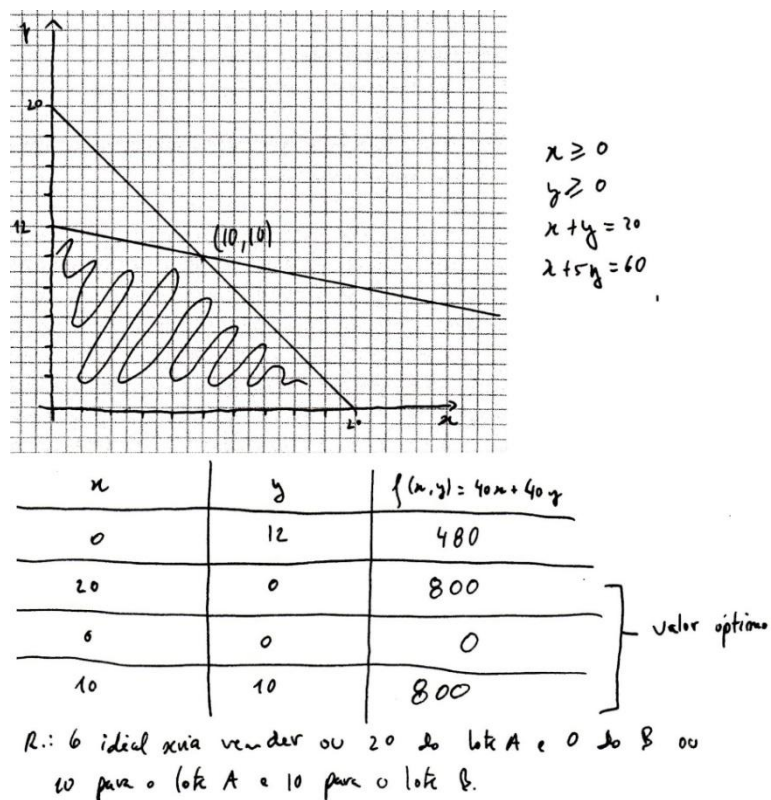 y
20
12
(10,10)
20
x
x ≥ 0
y ≥ 0
x + y = 20
x + 5y = 60
x y f(x,y) = 40x + 40y
0 12 480
20 0 800
0 0 0
10 10 800
valor óptimo
R.: O ideal seria vender ou 20 do lote A e 0 do B ou
10 para o lote A e 10 para o lote B.